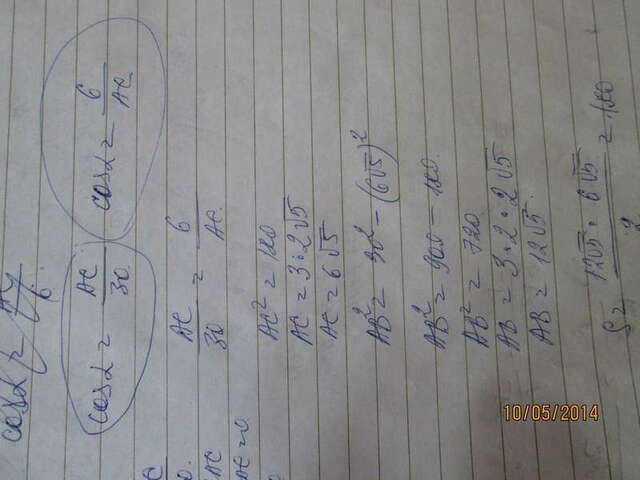 cosα =
cosα = AC/30 cosα = 6/AC
AC/30 = 6/AC
AC² = 180
AC = 3·2√5
AC = 6√5
AB² = 30² - (6√5)²
AB² = 900 - 180
AB² = 720
AB = 3·2·2√5
AB = 12√5
S = 12√5·6√5/2 = 180
10/05/2014